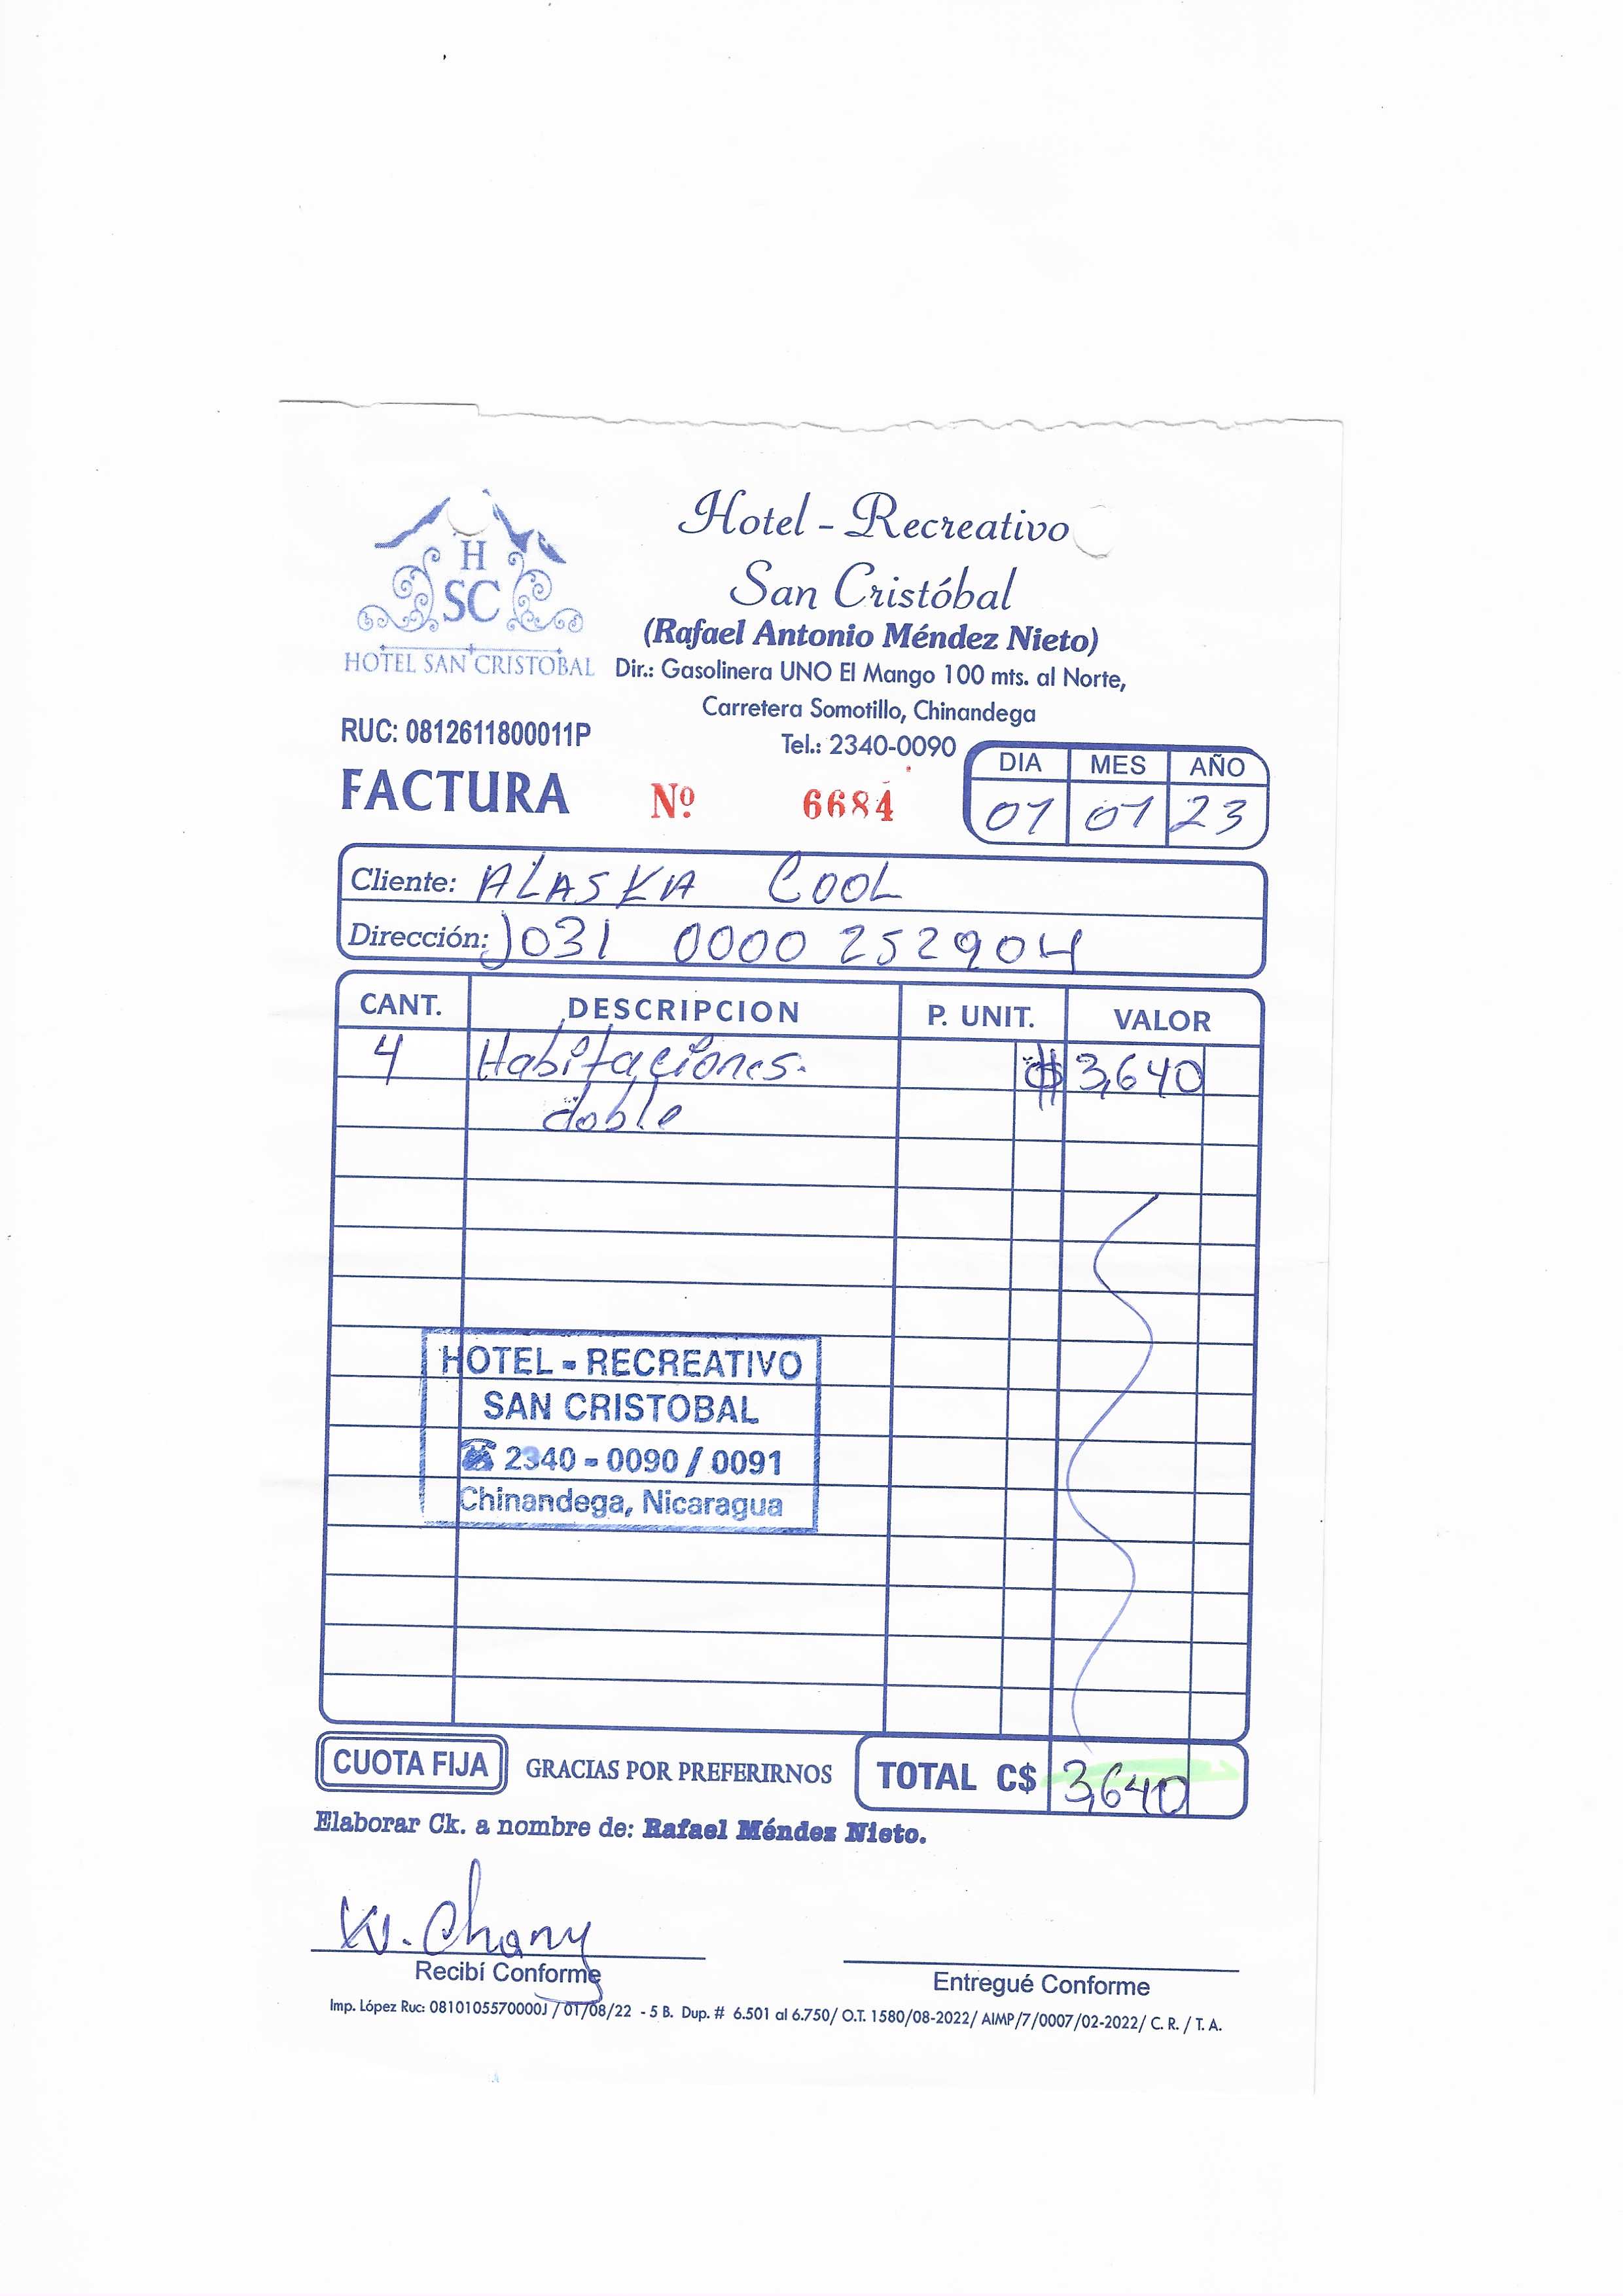 Hotel - Recreativo
San Cristóbal
(Rafael Antonio Méndez Nieto)
Dir.: Gasolinera UNO El Mango 100 mts. al Norte,
Carretera Somotillo, Chinandega
Tel.: 2340-0090
H
SC
HOTEL SAN CRISTOBAL
RUC: 0812611800011P
FACTURA Nº 6684
DIA MES AÑO
01 01 23
Cliente: ALASKA COOL
Dirección: J031 0000 252904
CANT. DESCRIPCION P. UNIT. VALOR
4 Habitaciones. C$ 3,640
doble
HOTEL - RECREATIVO
SAN CRISTOBAL
☎ 2340 - 0090 / 0091
Chinandega, Nicaragua
CUOTA FIJA GRACIAS POR PREFERIRNOS TOTAL C$ 3,640
Elaborar Ck. a nombre de: Rafael Méndez Nieto.
W. Chany
Recibí Conforme Entregué Conforme
Imp. López Ruc: 0810105570000J / 01/08/22 - 5 B. Dup. # 6.501 al 6.750/ O.T. 1580/08-2022/ AIMP/7/0007/02-2022/ C. R. / T. A.